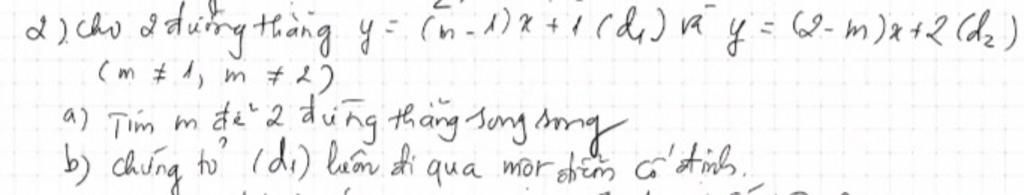 2). cho 2 đường thẳng y = (m - 1)x + 1 (d₁) và y = (2 - m)x + 2 (d₂)
(m ≠ 1, m ≠ 2)
a) Tìm m để 2 đường thẳng song song
b) chứng tỏ (d₁) luôn đi qua một điểm cố định.